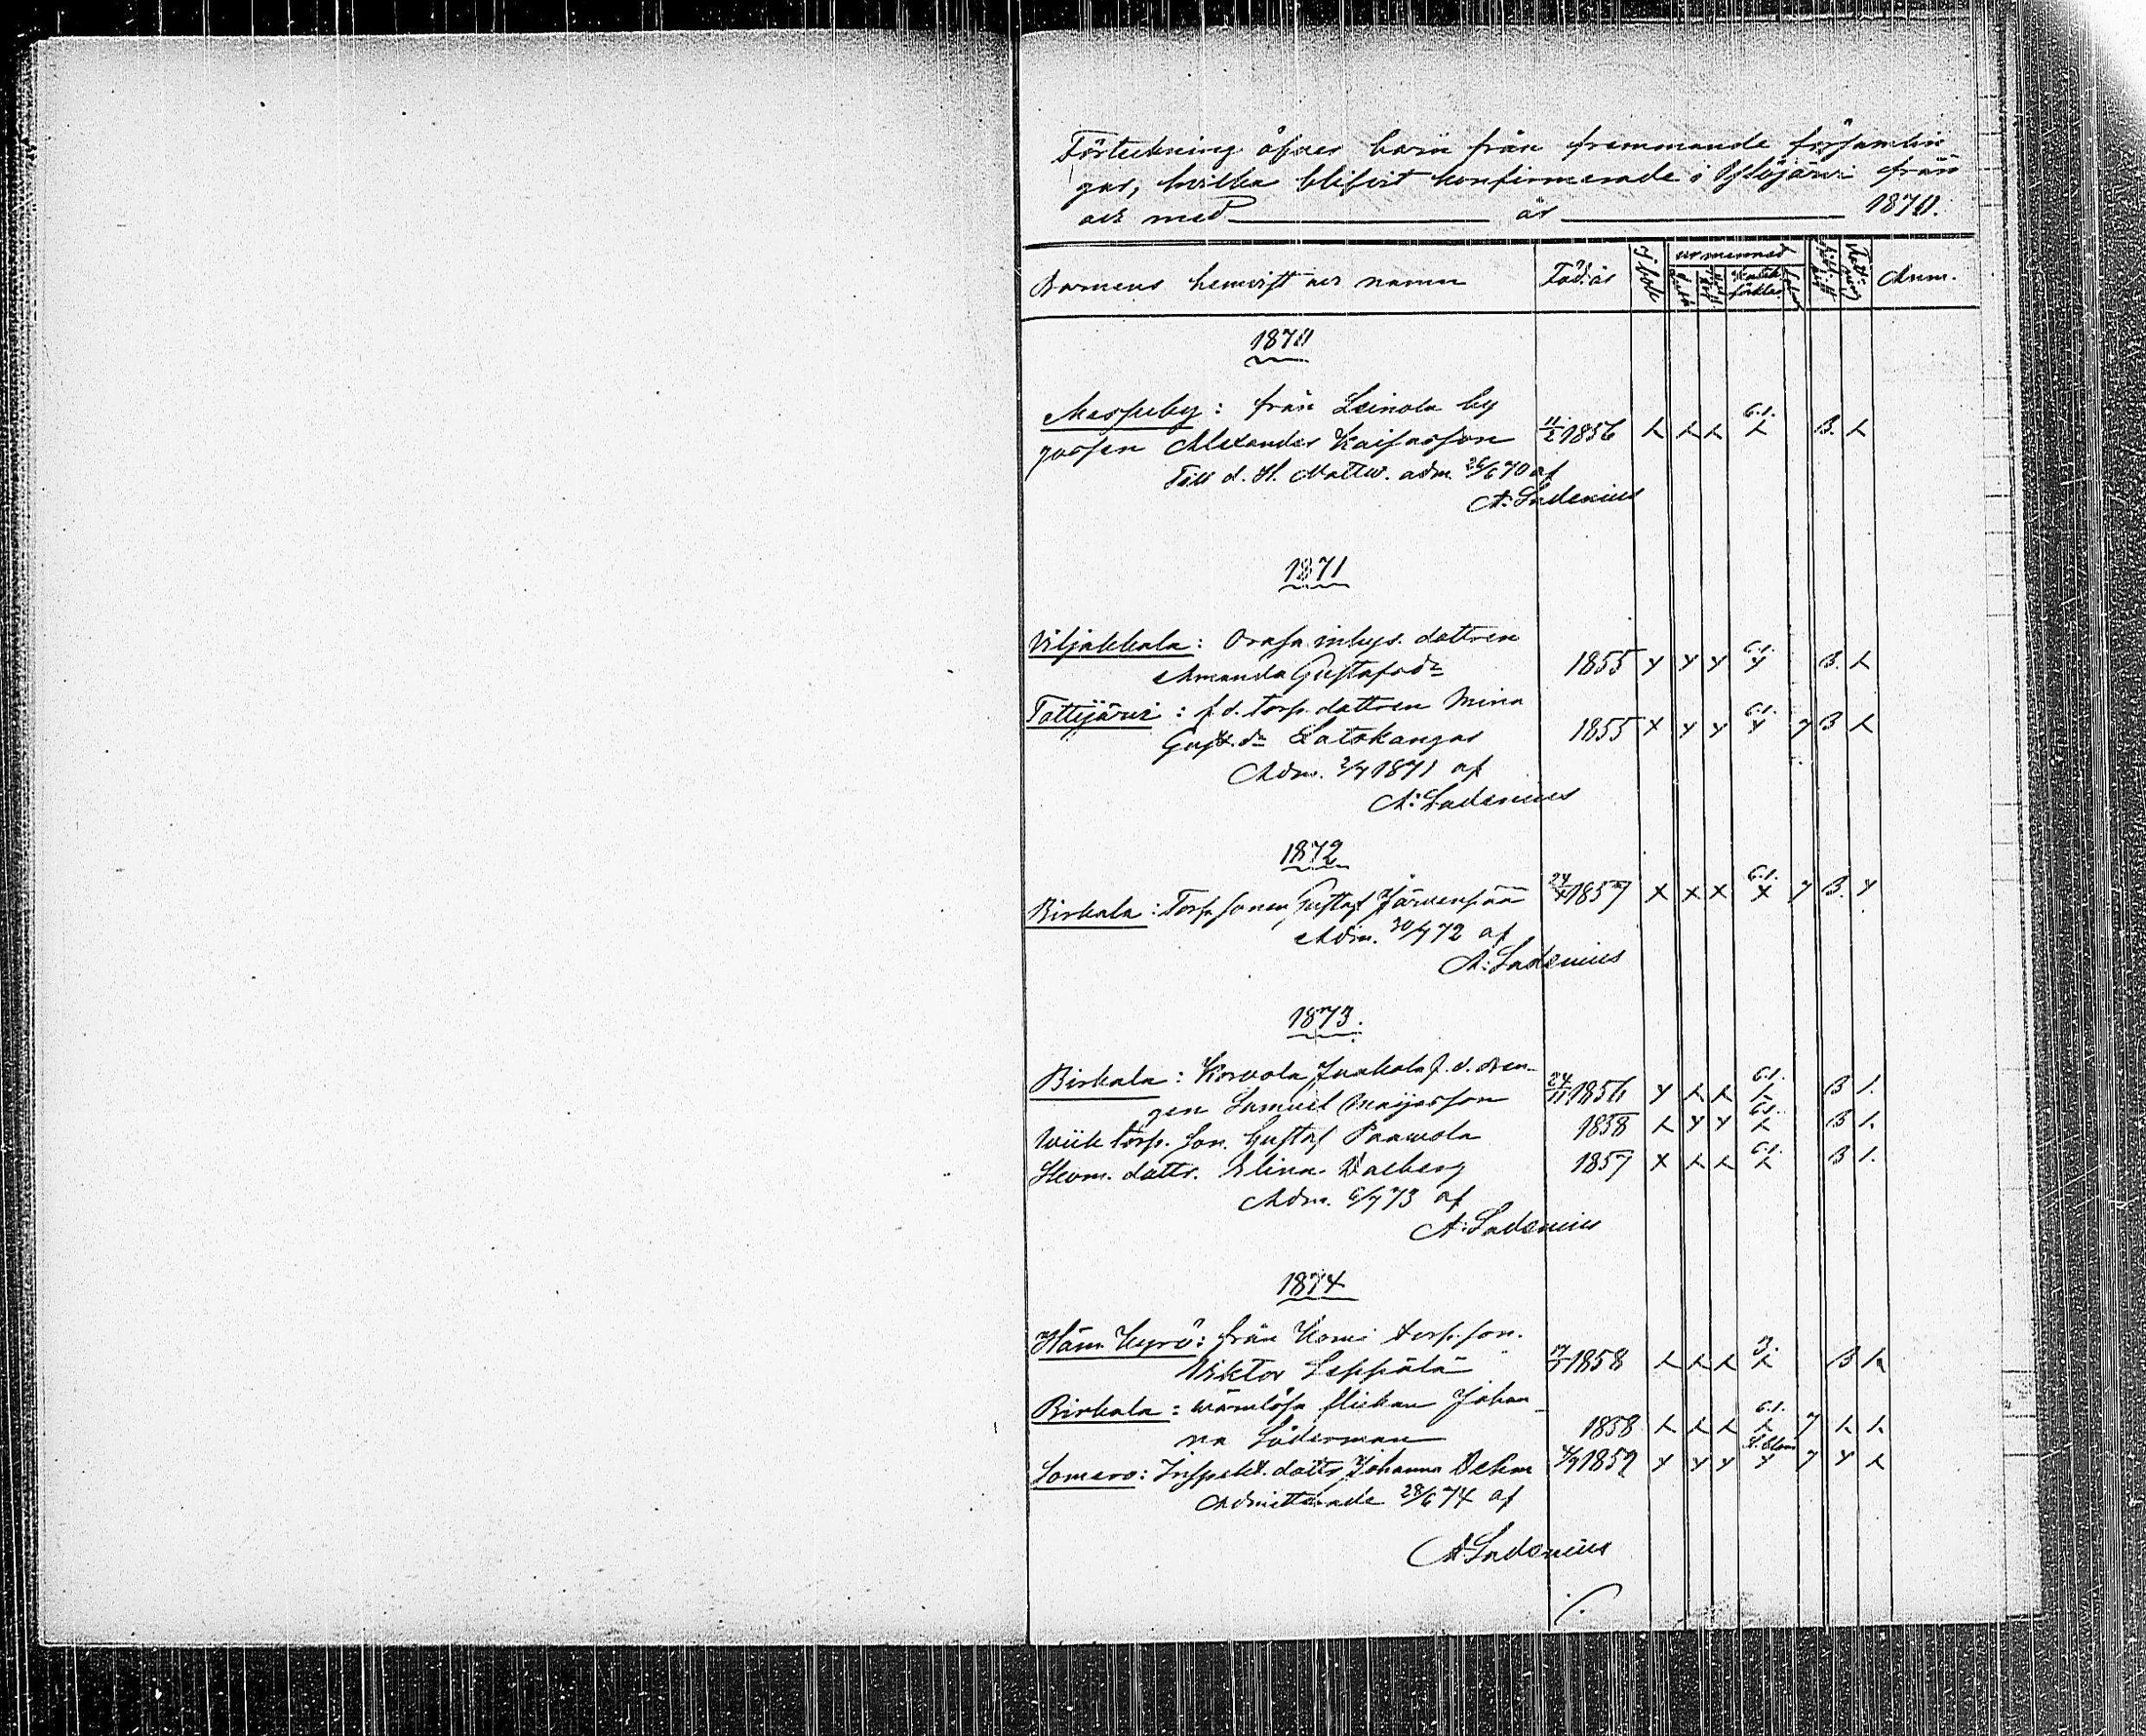 Förteckning öfver barn från främmande församlin
gar, hvilka blifvit konfirmerade i Ylöjärvi från
och med år 1870.
Barnens hemvist och namn Föd. år I bok ur minnet Anm.
1870
Messuby: från Leinola by
gossen Alexander Kaisasson 11/2 1856 G.s. B.
Till d. H. Nattv. adm. 26/6 70 af
A. Ladenius
1871
Viljakkala: Orasa inhys. dottren
Amanda Gustafsdr 1855 G.s. B.
Tottijärvi: f.d. torp. dottren Mina
Gust. dr Latokangas 1855 G.s. B
Adm. 2/7 1871 af
A. Ladenius
1872
Birkala: Torp. sonen Gustaf Järvenpää 24/ 1857 G.s. B.
Adm. 30/ 72 af
A. Ladenius
1873.
Birkala: Korvola Juakola f. d. drän-
gen Samuel Maijasson 24/11 1856 G.s. B
Wiik torp. son. Gustaf Paavola 1858 G.s. B
Hem. dottr. Elina Dalberg 1857 G.s. B
Adm. 6/7 73 af
A. Ladenius
1874
Häm. Kyrö: från Komi torp. son.
Viktor Leppälä 1858 B
Birkala: värnlösa flickan Johan-
na Söderman 1858 G.s.
Somero: Inspekt. dottr. Johanna Dehm 1859
Admitterade 28/6 74 af
A. Ladenius